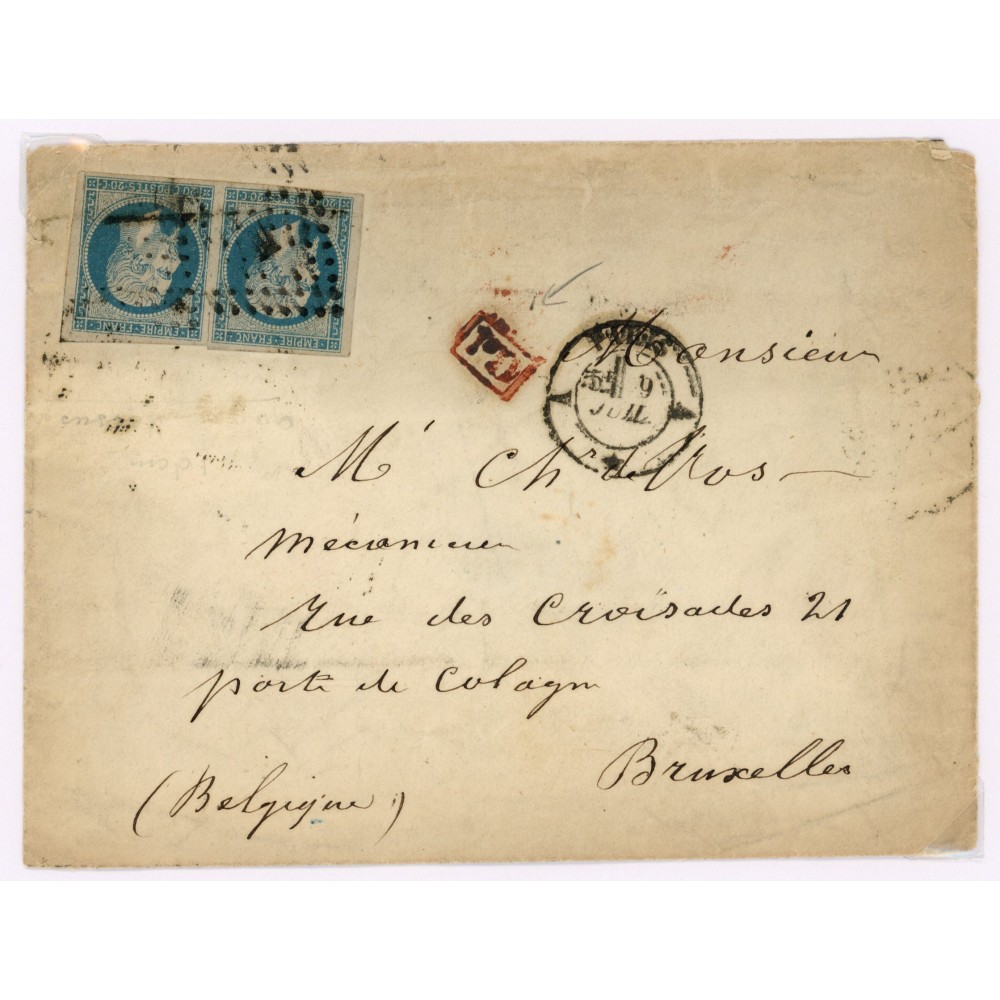 20.C.POSTES.20.C 20.C.POSTES.20.C
EMPIRE.FRANC. EMPIRE.FRANC.
PD
9
JUIL.
Monsieur
Mr Chr de Vos
mécanicien
rue des Croisades 21
porte de Cologne
Bruxelles
(Belgique)